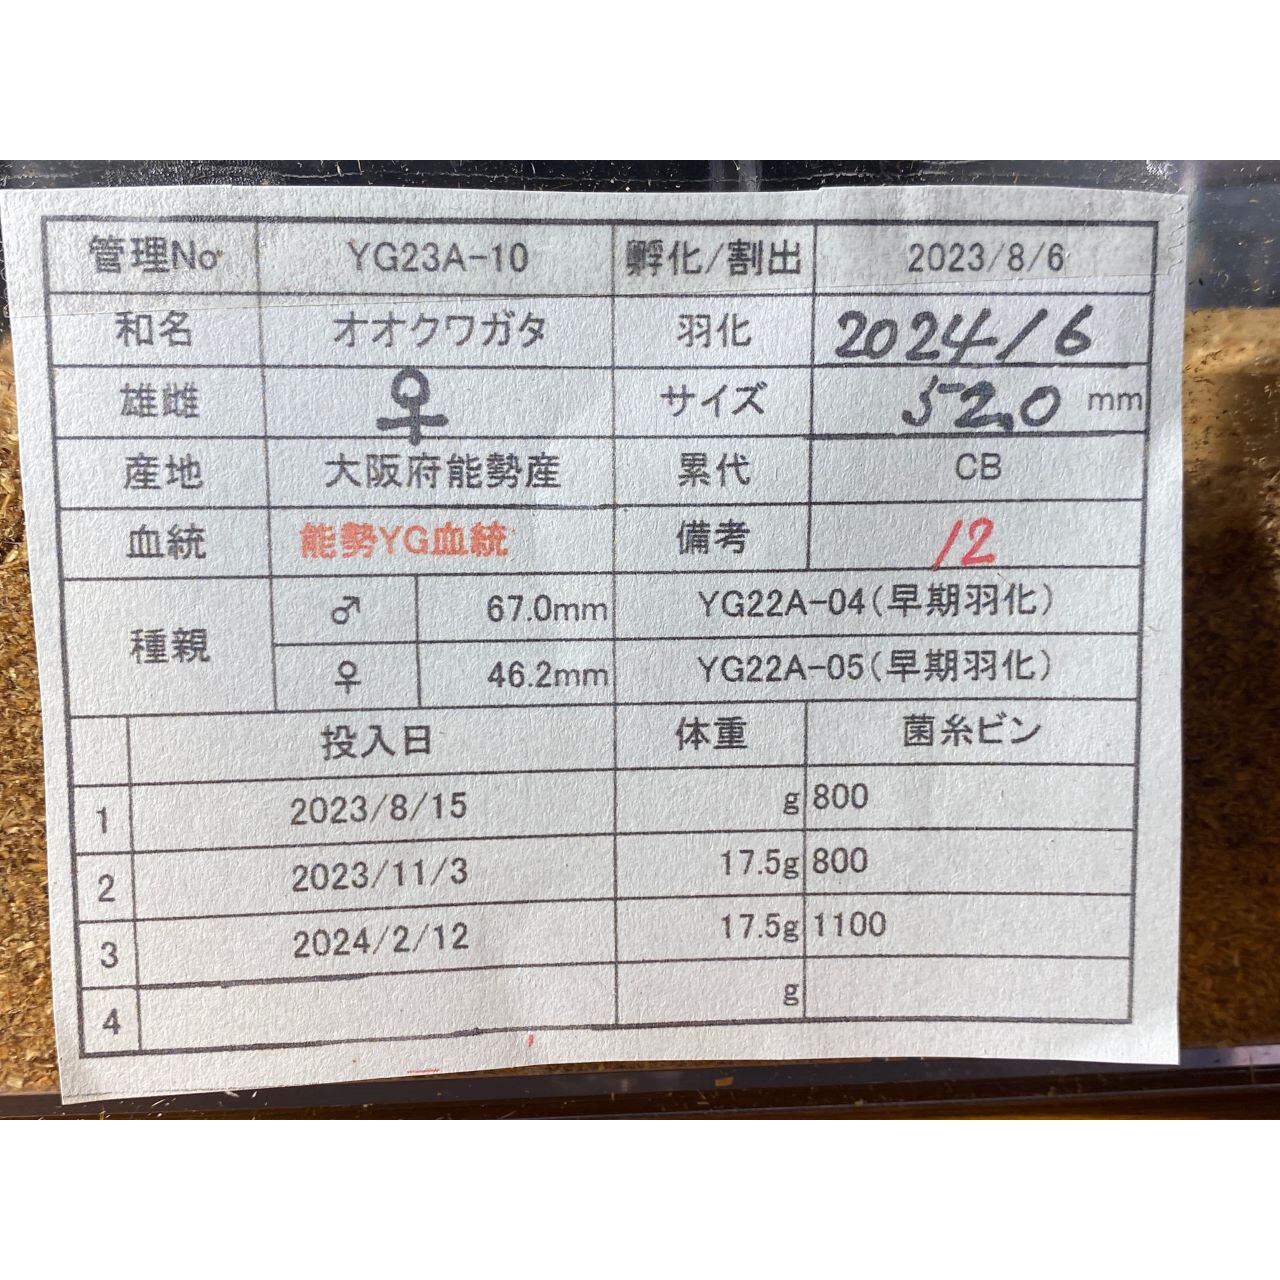 管理No YG23A-10 孵化/割出 2023/8/6
和名 オオクワガタ 羽化 2024/6
雄雌 ♀ サイズ 52.0 mm
産地 大阪府能勢産 累代 CB
血統 能勢YG血統 備考 12
種親 ♂ 67.0mm YG22A-04(早期羽化)
♀ 46.2mm YG22A-05(早期羽化)
投入日 体重 菌糸ビン
1 2023/8/15 g 800
2 2023/11/3 17.5g 800
3 2024/2/12 17.5g 1100
4 g